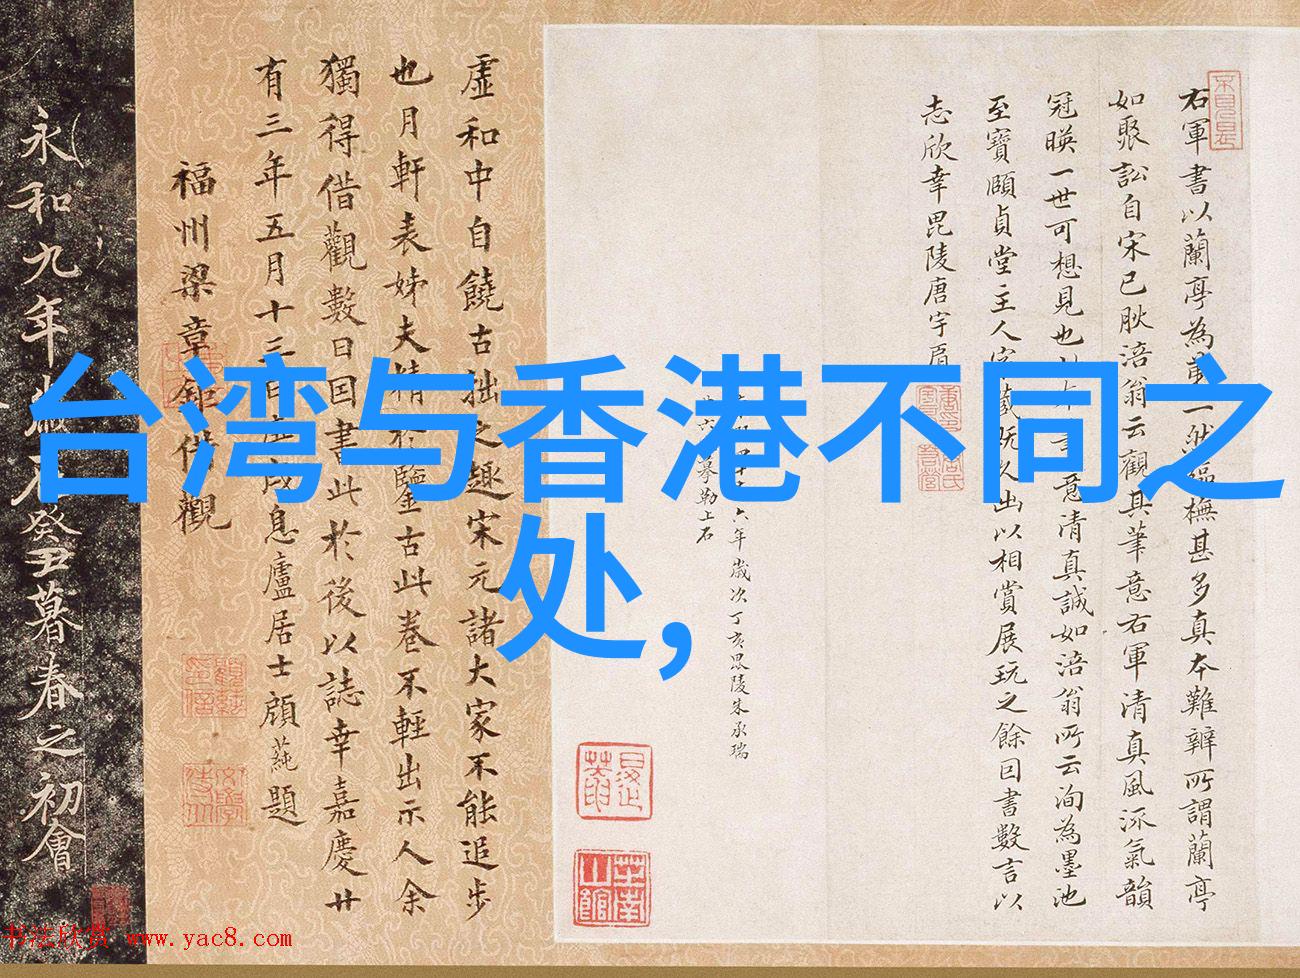 台湾与香港不同之
处,
右軍書以蘭亭為
如聚訟自宋已
冠暎一世可想見也
至寶頤貞堂主人
志欣幸毘陵唐宇肩
甚多真本難辨所謂蘭亭
翁云觀其筆意右軍清真風流氣韻
意清真誠如涪翁所云洵為墨池
出以相賞展玩之餘因書數言以
六年歲次丁亥毘陵朱承瑞
摹勒上石
虛和中自饒古拙之趣宋元諸大家不能追步
也月軒表姊夫精於鑒古此卷不輕出示人余
獨得借觀數日因書此於後以誌幸嘉慶廿
有三年五月十三日
息廬居士顧蒓題
福州梁章鉅借觀
永和九年歲在癸丑暮春之初會
书法欣赏 www.yac8.com